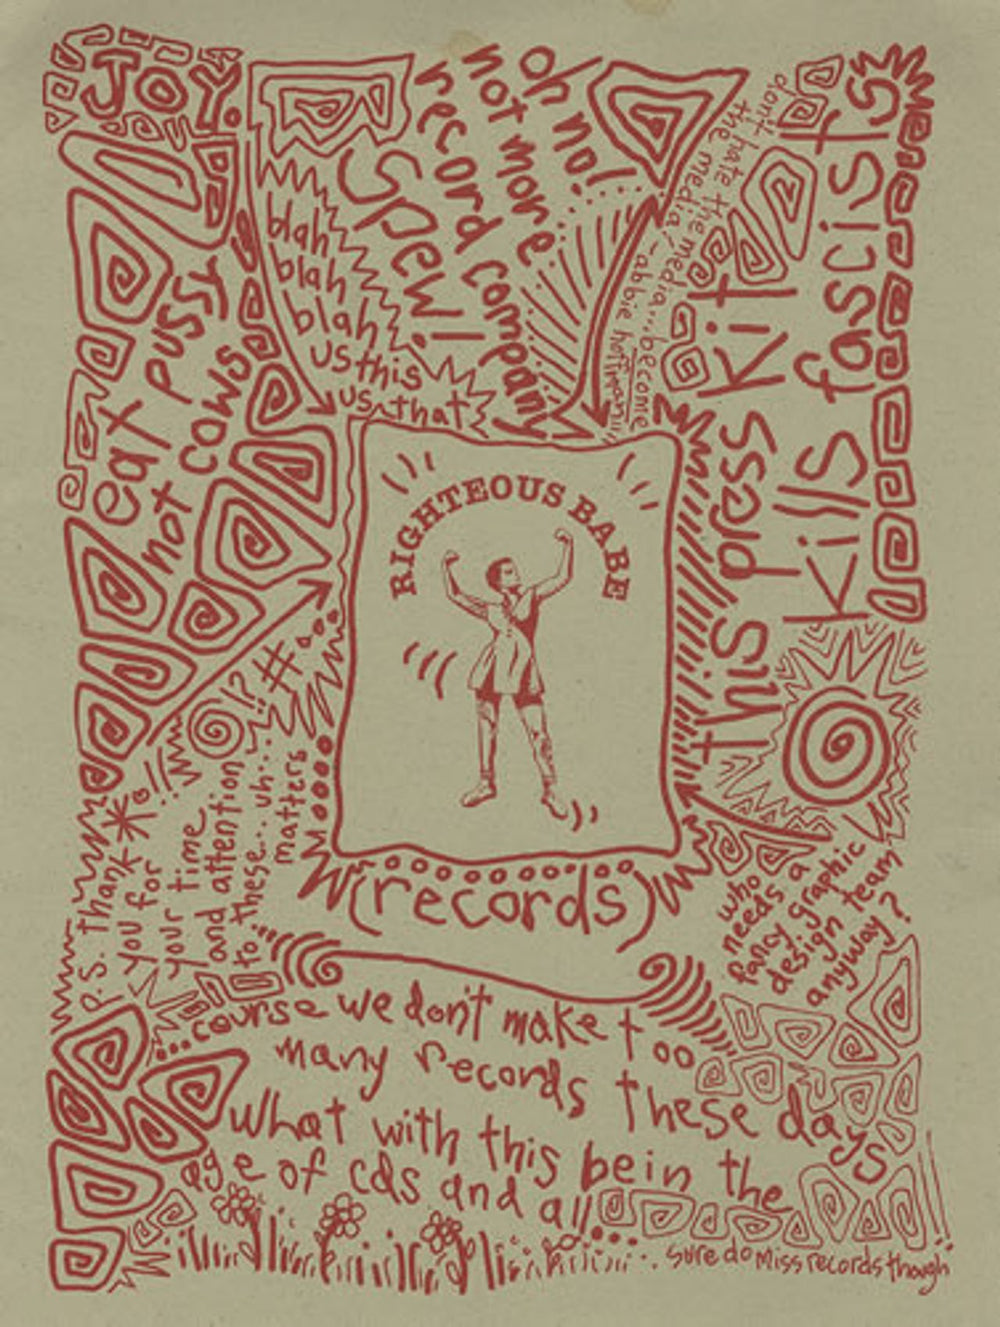 JOY.
oh no!
not more
record company
Spew!
blah
blah
blah
us this
us that
don't hate the media... become
the media - abbie hoffman
eat pussy
not cows
this press kit
kills fascists
RIGHTEOUS BABE
(records)
!?
#
P.S. thank *!!
you for
your time
and attention
to these... uh..
matters
who
needs a
fancy graphic
design team
anyway?
...course we don't make too
many records these days
what with this bein the
age of cds and all...
sure do miss records though